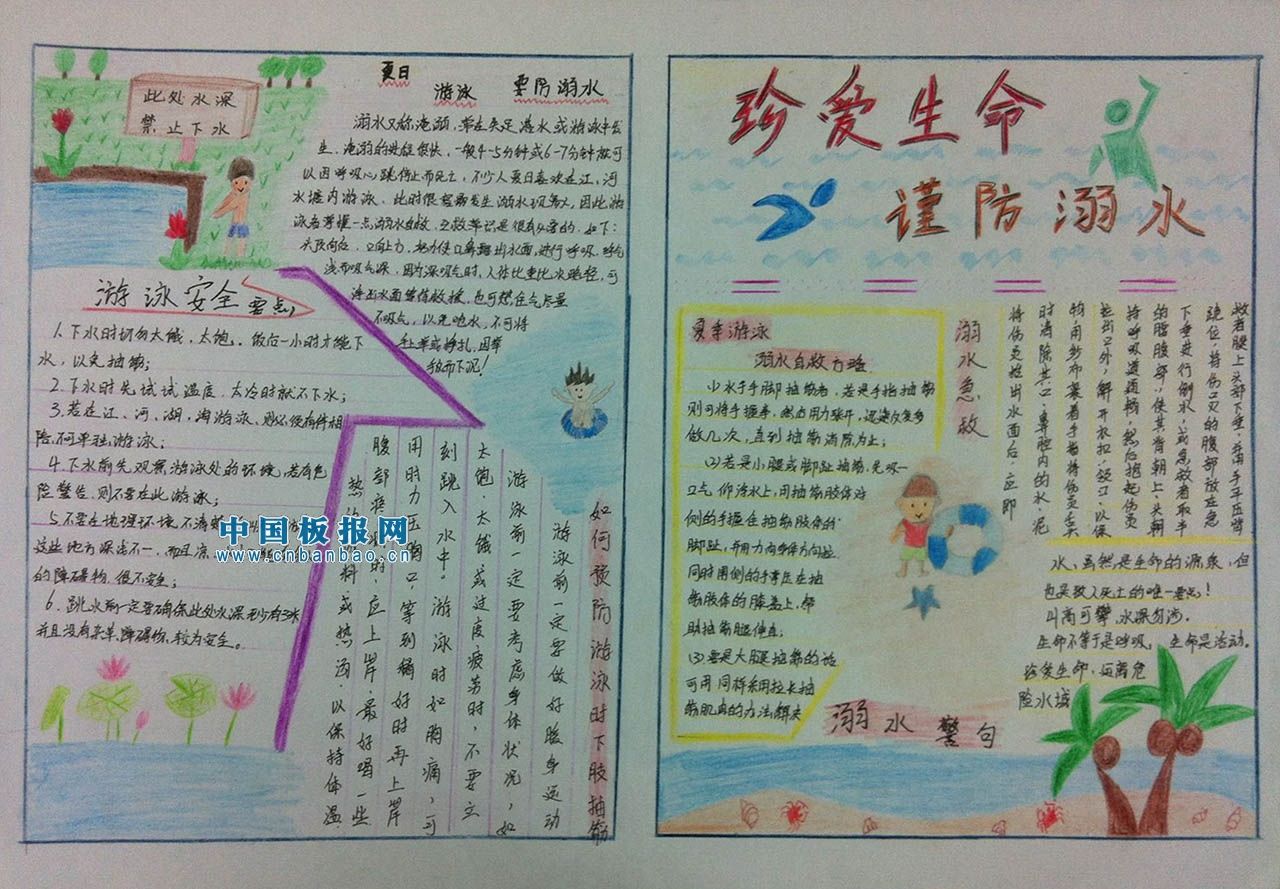 此处水深
禁止下水
夏日
游泳
要防溺水
溺水又称淹溺,常在失足落水或游泳中发
生.淹溺的进程很快,一般4-5分钟或6-7分钟就可
以因呼吸心跳停止而死亡,不少人夏日喜欢在江、河
水塘内游泳.此时很容易发生溺水现象,因此游
泳者掌握一点溺水自救、互救常识是很有必要的.如下:
头顶向后,口向上方,努力使口鼻露出水面,进行呼吸.呼气
浅而吸气深,因为深吸气时,人体比重比水略轻,可
浮出水面等待救援,也可憋住气尽量
不吸气,以免呛水,不可将
手上举或挣扎,因举
手反而下沉!
游泳安全要点
1.下水时切勿太饿,太饱。饭后一小时才能下
水,以免抽筋;
2.下水时先试试温度,太冷时就不下水;
3.若在江、河、湖、海游泳,则必须有伴相
陪,不可单独游泳;
4.下水前先观察游泳处的环境,若有危
险警告,则不要在此游泳;
5.不要在地理环境不清楚
这些地方深浅不一,而且凉
的障碍物,很不安全;
6.跳水前一定要确保此处水深至少有3米
并且没有杂草、障碍物,较为安全。
如何预防游泳时下肢抽筋
游泳前一定要做好暖身运动
游泳前一定要考虑身体状况,如
太饱、太饿或过度疲劳时,不要立
刻跳入水中。游泳时如胸痛,可
用力压胸口,等到稍好时再上岸
腹部疼时,应上岸,最好喝一些
热饮料或热汤,以保持体温.
珍爱生命
谨防溺水
夏季游泳
溺水自救方法
(1)水手手脚抽筋者,若是手指抽筋
则可将手握拳,然后用力张开,迅速反复多
做几次,直到抽筋消除为止;
(2)若是小腿或脚趾抽筋,先吸一
口气仰浮水上,用抽筋肢体对
侧的手握住抽筋肢体的
脚趾,并用力向身体方向拉
同时用侧的手掌压在抽
筋肢体的膝盖上,帮
助抽筋腿伸直;
(3)要是大腿抽筋的话
可用同样采用拉长抽
筋肌肉的方法解决
溺水急救
将伤员抬出水面后,应即
时清除其口、鼻腔内的水、泥
物,用纱布裹着手指将伤员舌头
拉出口外,解开衣扣、领口,以保
持呼吸道通畅,然后抱起伤员
的腰腹部,使其背朝上、头朝
下垂进行倒水,或急救者取半
跪位,将伤员的腹部放在急
救者腿上头部下垂,并用手平压背
水,虽然是生命的源泉,但
也是致人死亡的唯一要忌!
山高可攀,水深勿涉.
生命不等于是呼吸,生命是活动.
珍爱生命,远离危
险水域
溺水警句
中国板报网
www.cnbanbao.cn